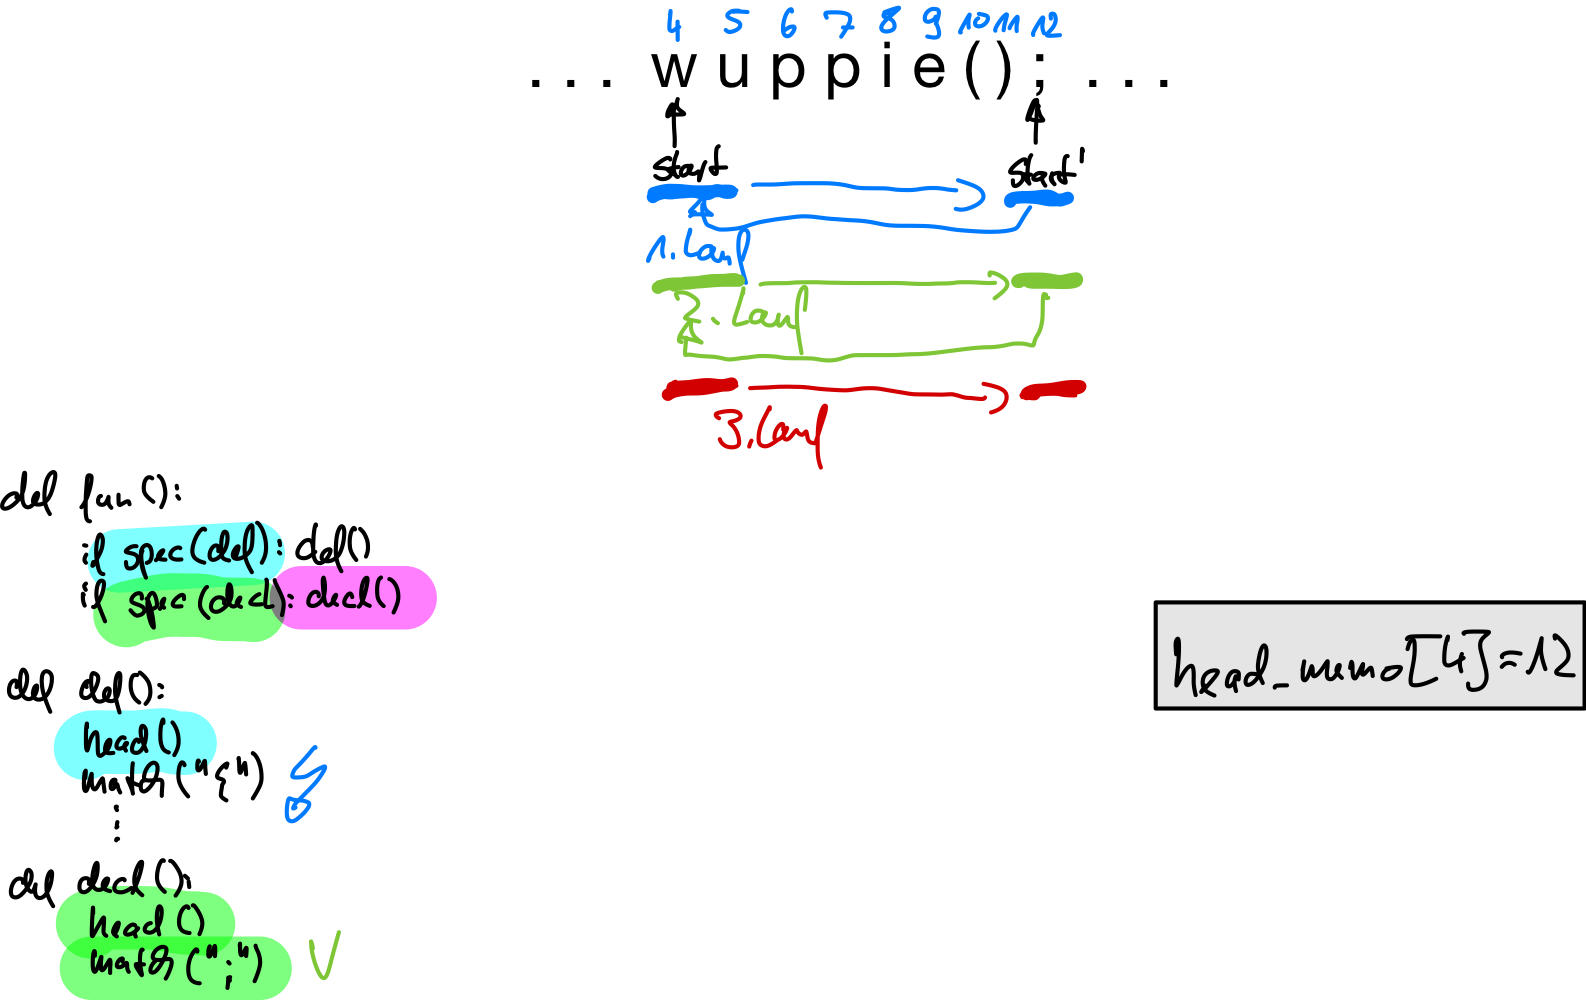 4 5 6 7 8 9 10 11 12
... wuppie(); ...
start start'
1. Lauf
2. Lauf
3. Lauf
def fun():
if spec(def): def()
if spec(decl): decl()
def def():
head()
match("{")
⋮
def decl():
head()
match(";")
head_memo[4]=12